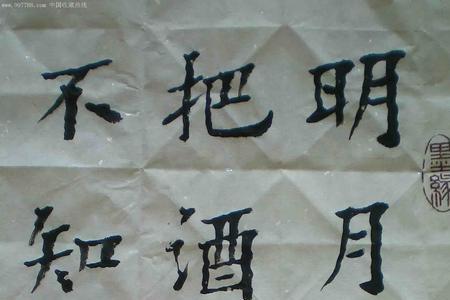 www.997788.com 中国收藏热线
明月
把酒
不知
墨缘